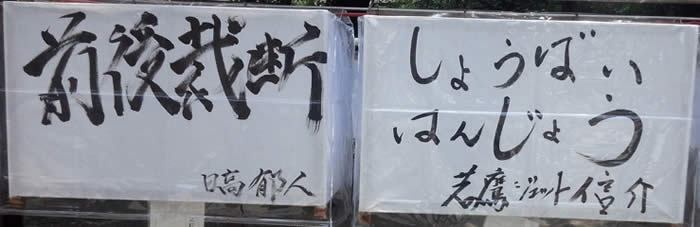 前後裁断
日高郁人
しょうばい
はんじょう
若鷹ジェット信介